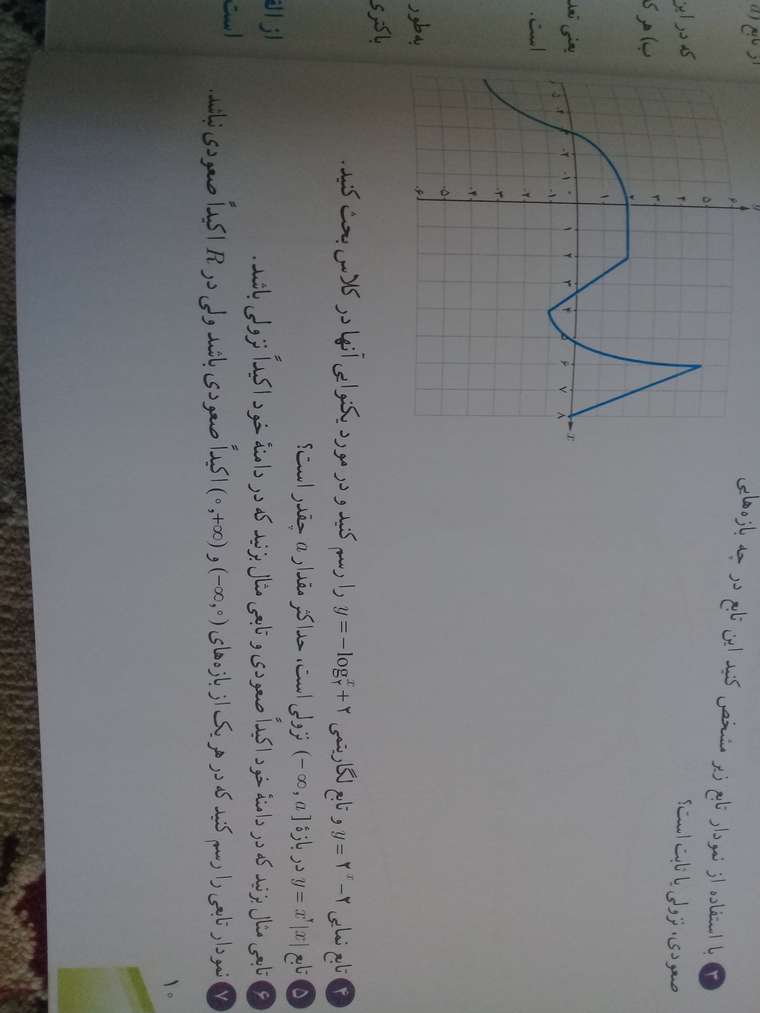 از تابع (f
که در این
ب) هر
یعنی
است.
به‌طور
باکتری
از
است
۳ با استفاده از نمودار تابع زیر مشخص کنید این تابع در چه بازه‌هایی
صعودی، نزولی یا ثابت است؟
y
۶
۵
۴
۳
۲
۱
۰
-۱
-۲
-۳
-۴
-۵
-۶
-۲ -۱ ۱ ۲ ۳ ۴ ۵ ۶ ۷ ۸ x
۴ تابع نمایی y = ۲^x - ۲ و تابع لگاریتمی y = -log_۲^x + ۲ را رسم کنید و در مورد یکنوایی آنها در کلاس بحث کنید.
۵ تابع y = x^۲|x| در بازهٔ (-∞, a] نزولی است، حداکثر مقدار a چقدر است؟
۶ تابعی مثال بزنید که در دامنهٔ خود اکیداً صعودی و تابعی مثال بزنید که در دامنهٔ خود اکیداً نزولی باشد.
۷ نمودار تابعی را رسم کنید که در هر یک از بازه‌های (-∞,۰) و (۰,+∞) اکیداً صعودی باشد ولی در R اکیداً صعودی نباشد.
۱۰